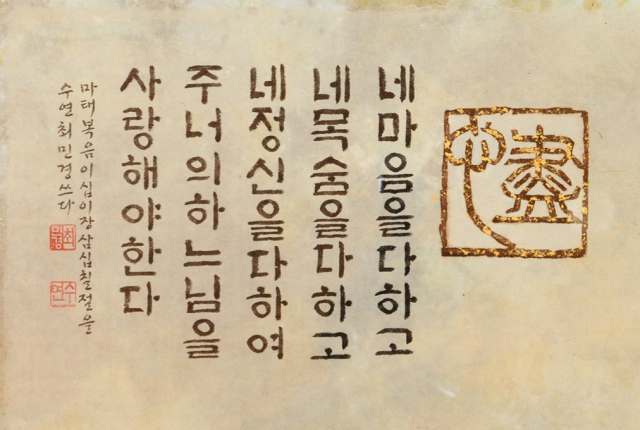 盡心
네마음을다하고
네목숨을다하고
네정신을다하여
주너의하느님을
사랑해야한다
마태복음이십이장삼십칠절을
수연최민경쓰다
수연